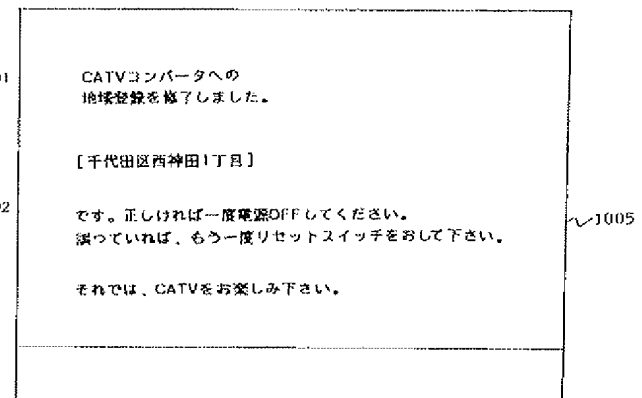 CATVコンバータへの
地域登録を修了しました。
[千代田区西神田1丁目]
です。正しければ一度電源OFFしてください。
誤っていれば、もう一度リセットスイッチをおして下さい。
1005
それでは、CATVをお楽しみ下さい。